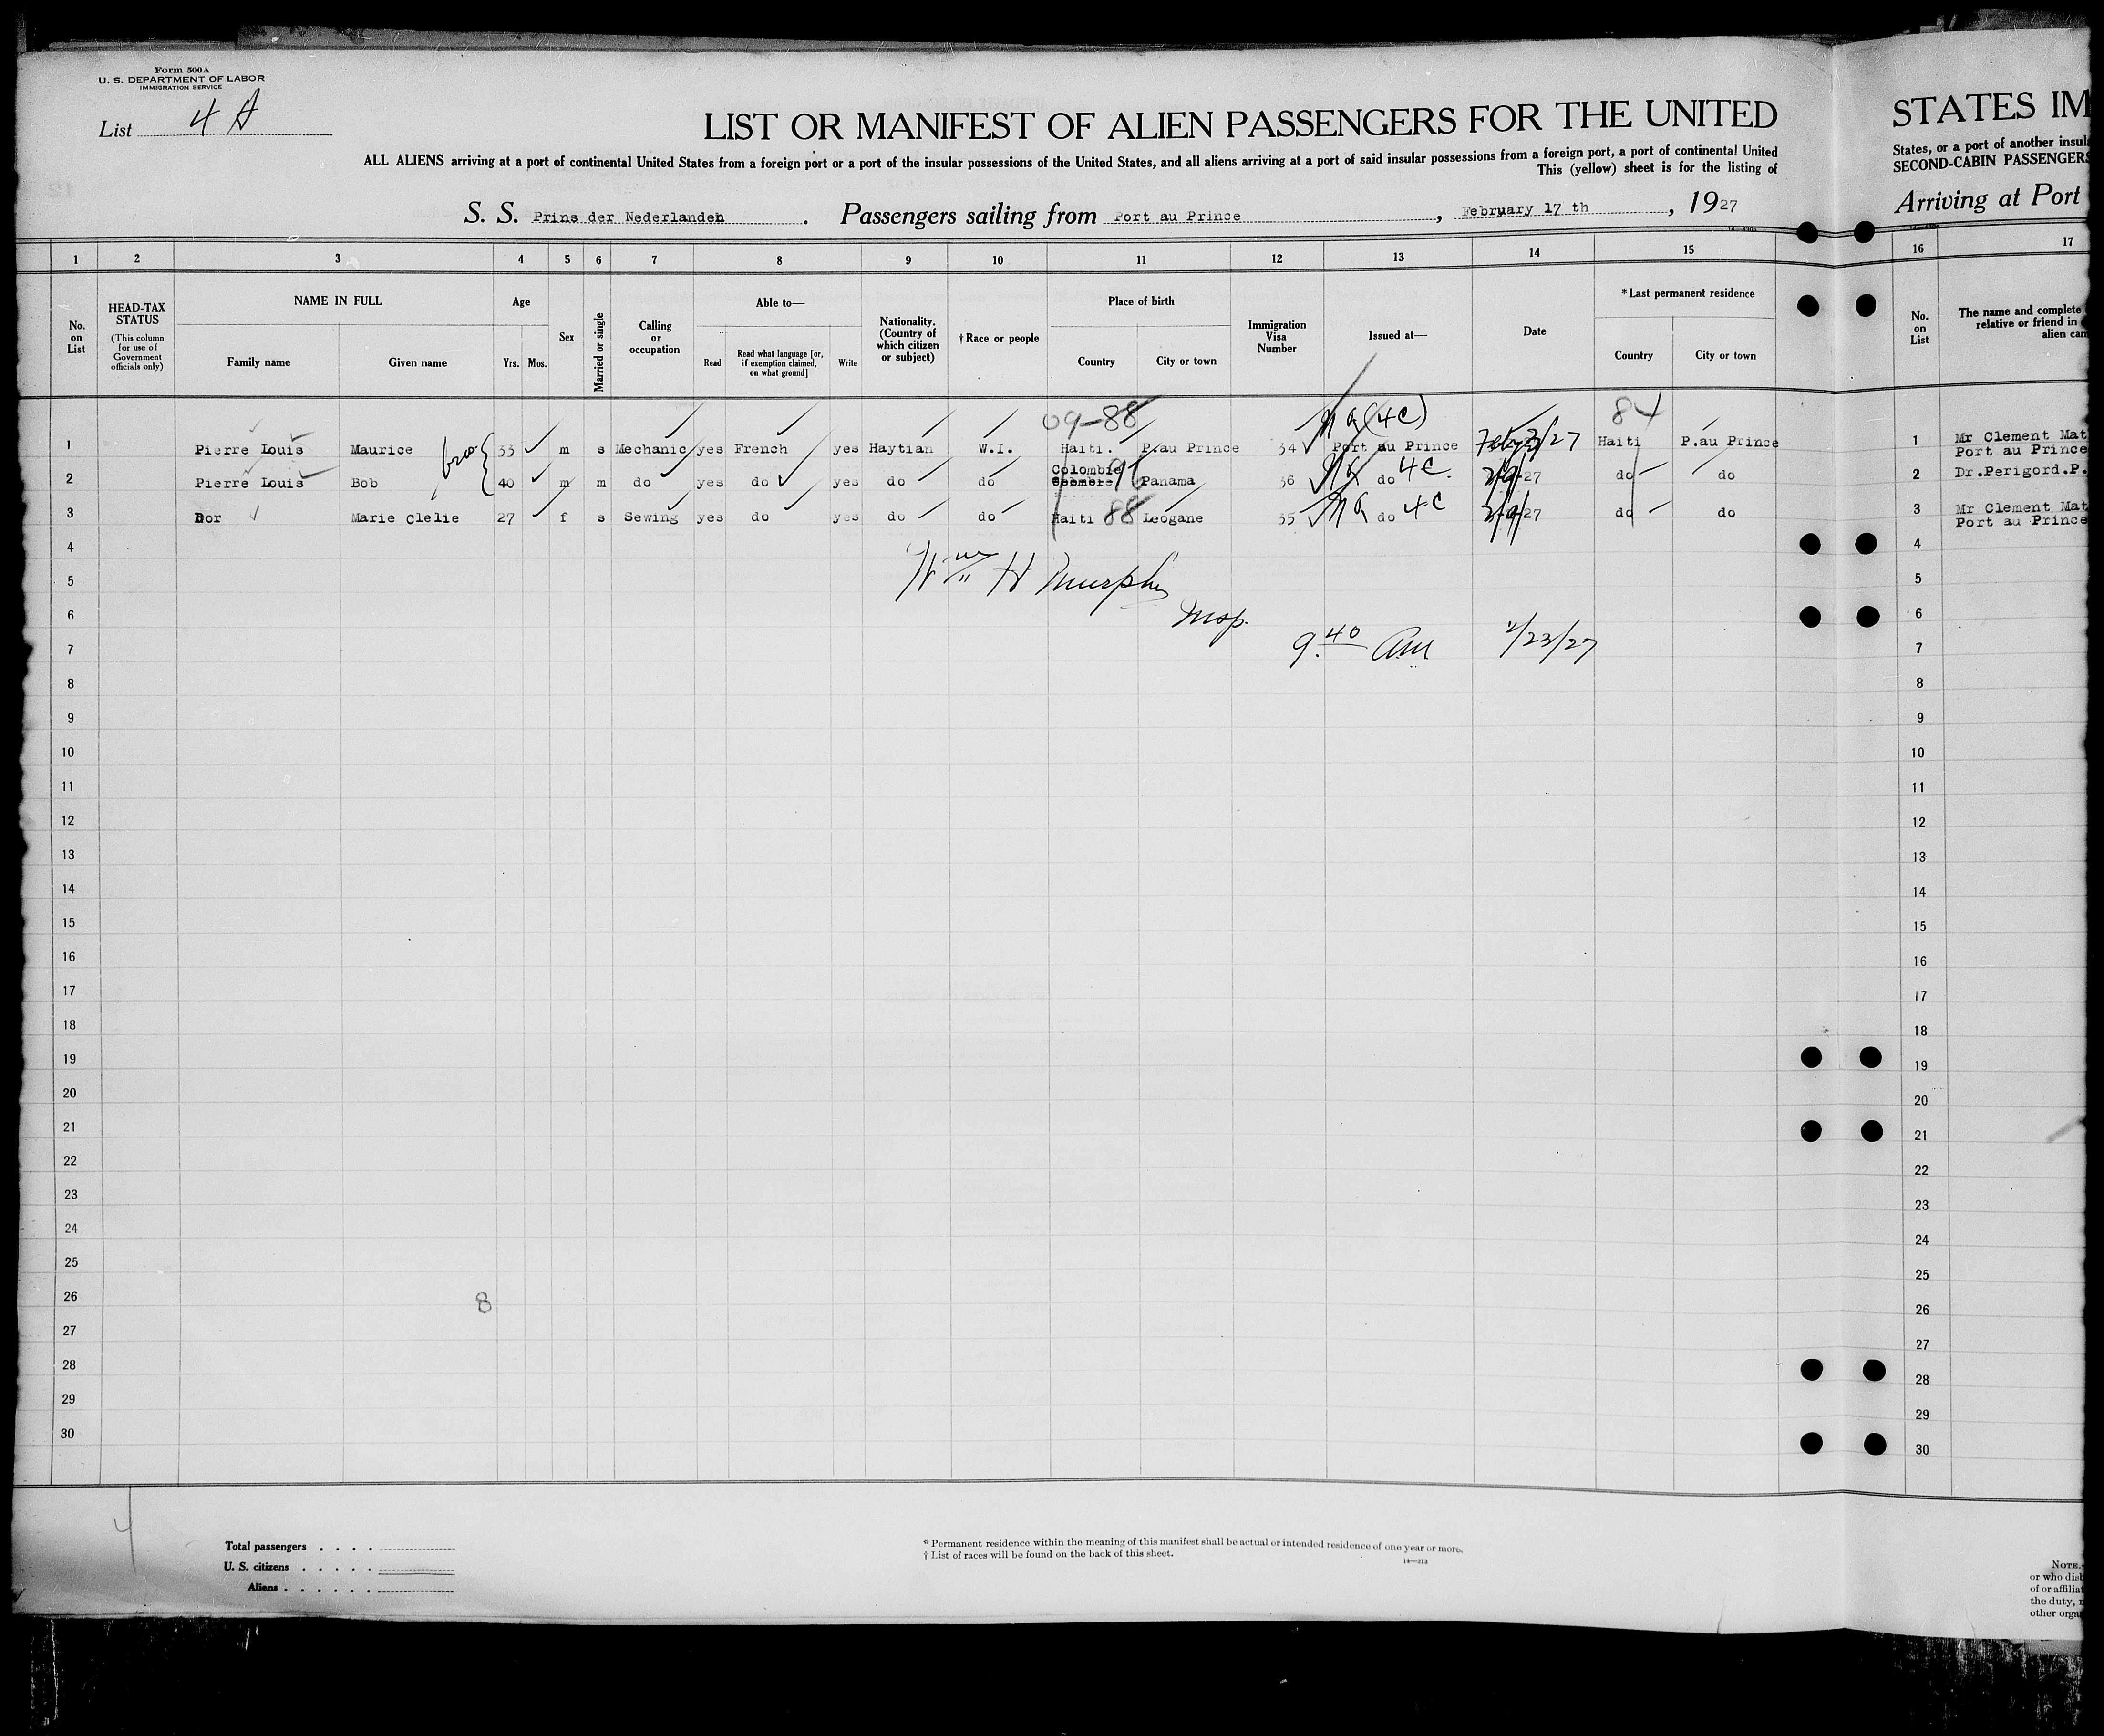 Form 500A
U. S. DEPARTMENT OF LABOR
IMMIGRATION SERVICE
List 4 A
LIST OR MANIFEST OF ALIEN PASSENGERS FOR THE UNITED
STATES IM
ALL ALIENS arriving at a port of continental United States from a foreign port or a port of the insular possessions of the United States, and all aliens arriving at a port of said insular possessions from a foreign port, a port of continental United
States, or a port of another insul
This (yellow) sheet is for the listing of
SECOND-CABIN PASSENGERS
S. S. Prins der Nederlanden. Passengers sailing from Port au Prince, February 17 th, 1927
Arriving at Port
1 2 3 4 5 6 7 8 9 10 11 12 13 14 15 16 17
No. on List
HEAD-TAX STATUS
(This column for use of Government officials only)
NAME IN FULL
Family name Given name
Age
Yrs. Mos.
Sex
Married or single
Calling or occupation
Able to—
Read Read what language [or, if exemption claimed, on what ground] Write
Nationality. (Country of which citizen or subject)
†Race or people
Place of birth
Country City or town
Immigration Visa Number
Issued at—
Date
*Last permanent residence
Country City or town
No. on List
The name and complete
relative or friend in
alien cam
09-88 NQ (4C) 84
1 Pierre Louis Maurice bros 33 m s Mechanic yes French yes Haytian W.I. Haiti. P.au Prince 34 Port au Prince Feby 3/27 Haiti P.au Prince 1 Mr Clement Mat
Port au Prince
Colombie
2 Pierre Louis Bob 40 m m do yes do yes do do Panama 36 NQ do 4C 27 do do 2 Dr.Perigord.P.
3 Dor Marie Clelie 27 f s Sewing yes do yes do do Haiti 88 Leogane 35 NQ do 4C 27 do do 3 Mr Clement Mat
Port au Prince
4 4
5 Wm H Murphy 5
6 Insp. 6
7 9.40 Am 2/23/27 7
8 8
9 9
10 10
11 11
12 12
13 13
14 14
15 15
16 16
17 17
18 18
19 19
20 20
21 21
22 22
23 23
24 24
25 25
26 8 26
27 27
28 28
29 29
30 30
4
Total passengers . . . .
U. S. citizens . . . . .
Aliens . . . . . .
* Permanent residence within the meaning of this manifest shall be actual or intended residence of one year or more.
† List of races will be found on the back of this sheet.
14—213
NOTE.
or who disb
of or affiliat
the duty, n
other organ